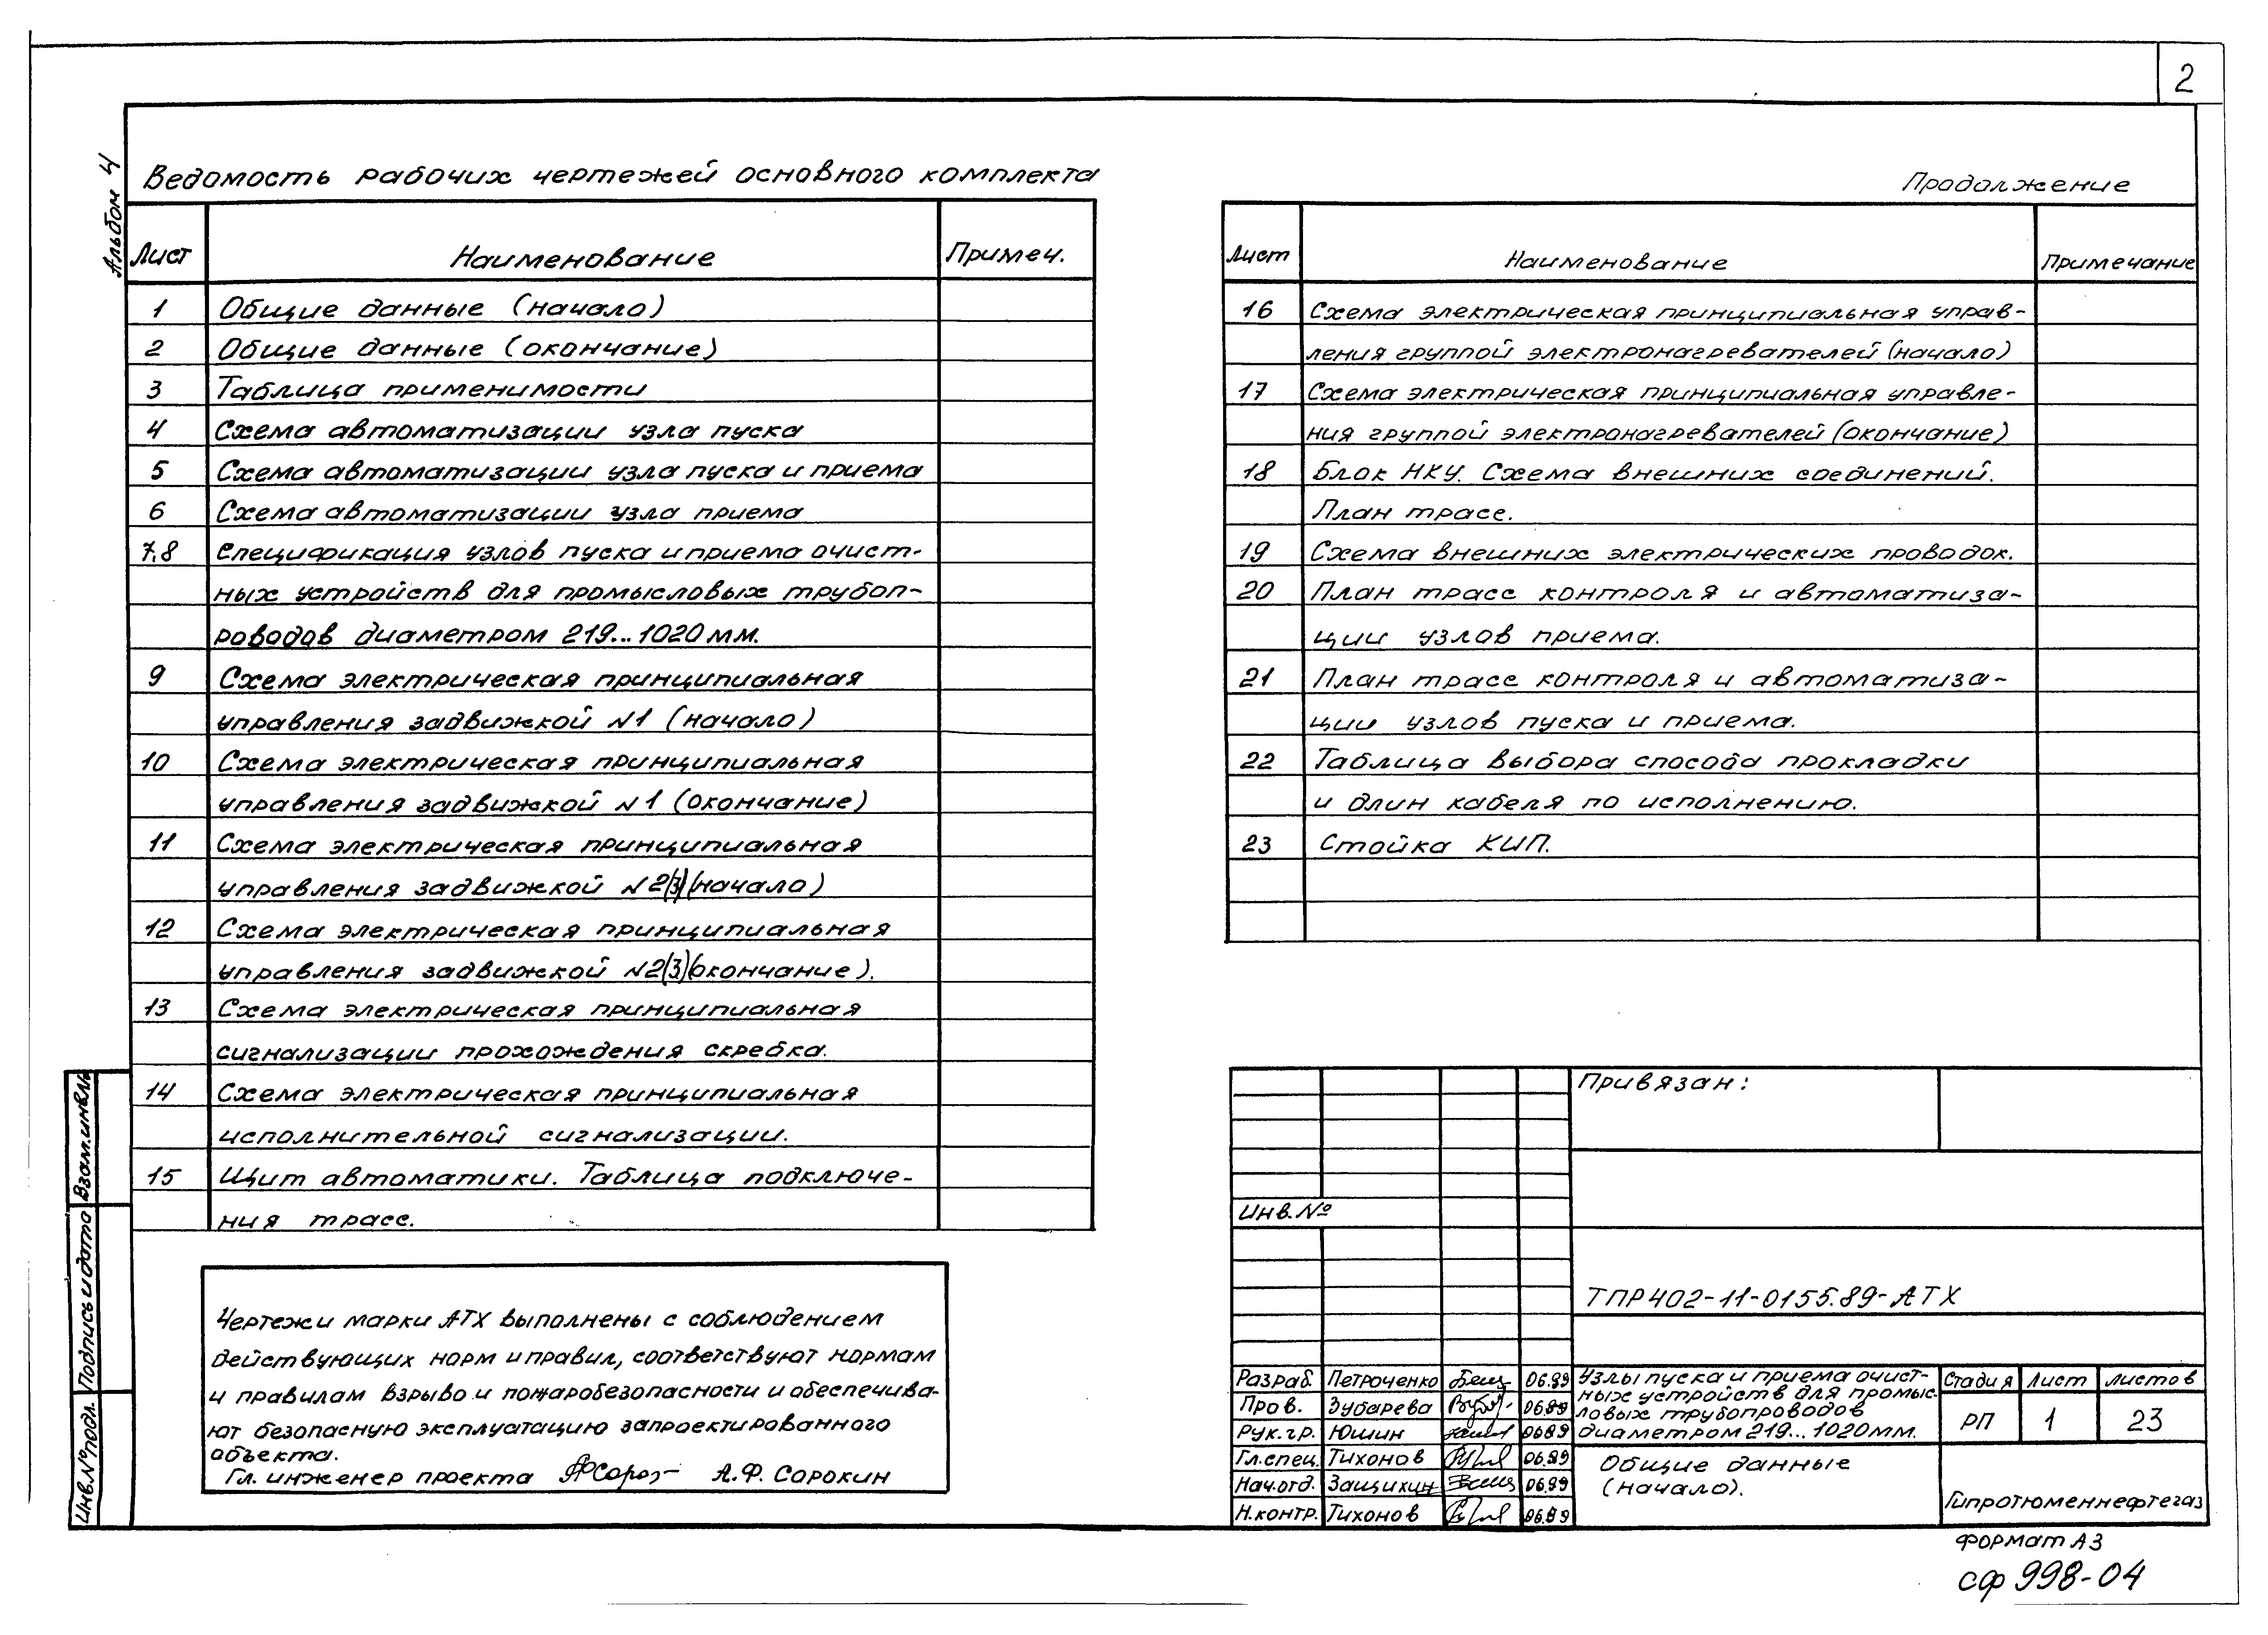 2
Альбом 4
Ведомость рабочих чертежей основного комплекта
Лист Наименование Примеч.
1 Общие данные (начало)
2 Общие данные (окончание)
3 Таблица применимости
4 Схема автоматизации узла пуска
5 Схема автоматизации узла пуска и приема
6 Схема автоматизации узла приема
7,8 Спецификация узлов пуска и приема очист-
ных устройств для промысловых трубоп-
роводов диаметром 219...1020 мм.
9 Схема электрическая принципиальная
управления задвижкой N1 (начало)
10 Схема электрическая принципиальная
управления задвижкой N1 (окончание)
11 Схема электрическая принципиальная
управления задвижкой N2(3)(начало)
12 Схема электрическая принципиальная
управления задвижкой N2(3)(окончание).
13 Схема электрическая принципиальная
сигнализации прохождения скребка.
14 Схема электрическая принципиальная
исполнительной сигнализации.
15 Щит автоматики. Таблица подключе-
ния трасс.
Продолжение
Лист Наименование Примечание
16 Схема электрическая принципиальная управ-
ления группой электронагревателей (начало)
17 Схема электрическая принципиальная управле-
ния группой электронагревателей (окончание)
18 Блок НКУ. Схема внешних соединений.
План трасс.
19 Схема внешних электрических проводок.
20 План трасс контроля и автоматиза-
ции узлов приема.
21 План трасс контроля и автоматиза-
ции узлов пуска и приема.
22 Таблица выбора способа прокладки
и длин кабеля по исполнению.
23 Стойка КИП.
Чертежи марки АТХ выполнены с соблюдением
действующих норм и правил, соответствуют нормам
и правилам взрыво и пожаробезопасности и обеспечива-
ют безопасную эксплуатацию запроектированного
объекта.
Гл. инженер проекта А.Ф. Сорокин
Взам.инв.№
Подпись и дата
Инв.№подл.
Привязан:
Инв.№
ТПР402-11-0155.89-АТХ
Разраб. Петроченко 06.89
Пров. Зубарева 06.89
Рук.гр. Юшин 06.89
Гл.спец. Тихонов 06.89
Нач.отд. Защихин 06.89
Н.контр. Тихонов 06.89
Узлы пуска и приема очист-
ных устройств для промыс-
ловых трубопроводов
диаметром 219...1020мм.
Стадия Лист Листов
РП 1 23
Общие данные
(начало).
Гипротюменнефтегаз
Формат А3
сф 998-04